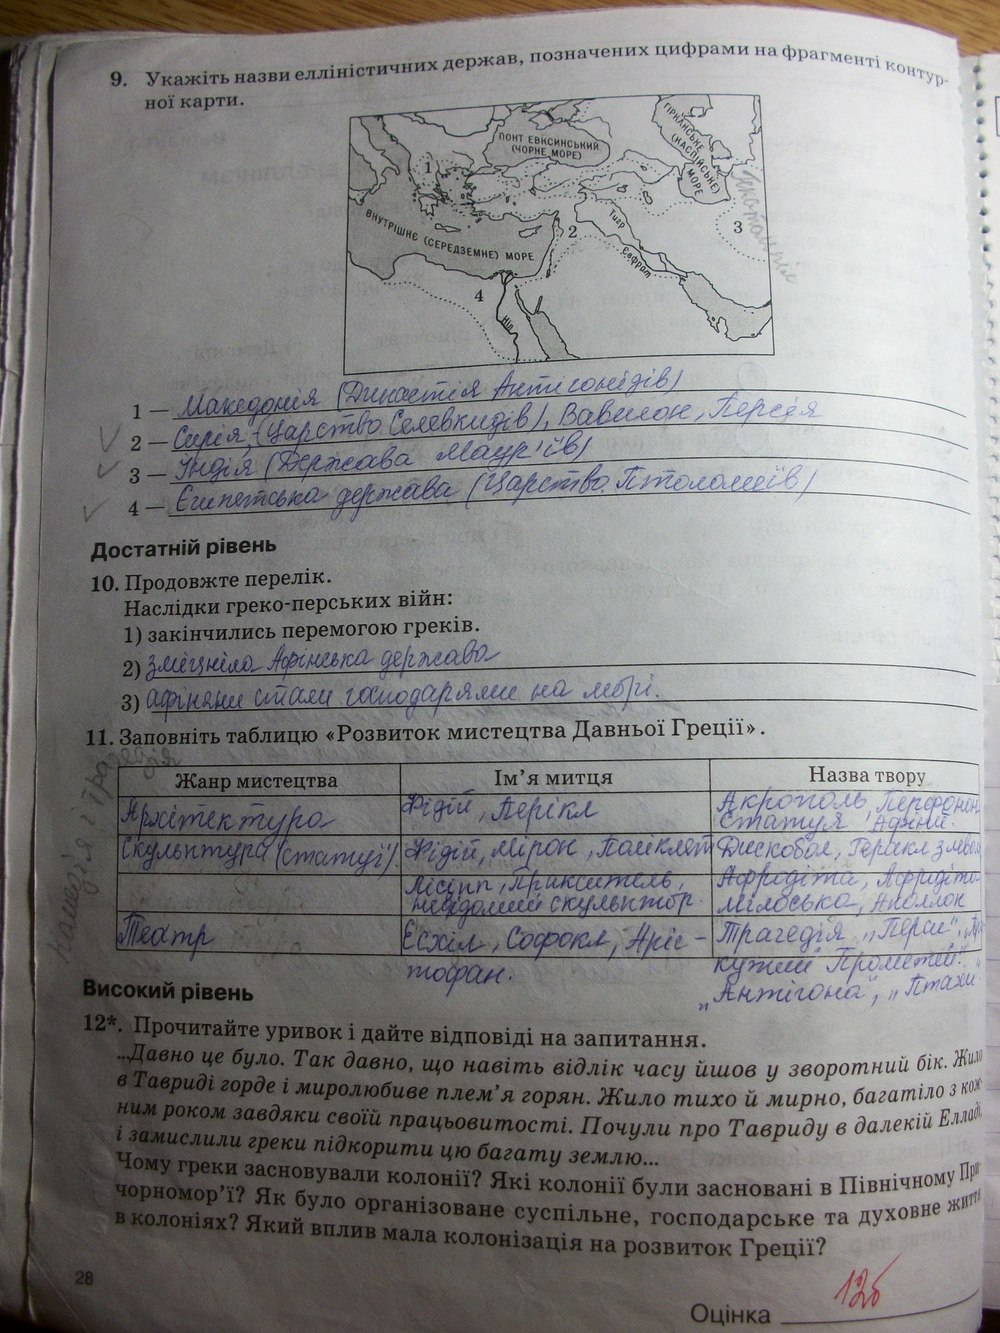 9. Укажіть назви елліністичних держав, позначених цифрами на фрагменті контур-
ної карти.
ПОНТ ЕВКСИНСЬКИЙ
(ЧОРНЕ МОРЕ)
ГІРКАНСЬКЕ
(КАСПІЙСЬКЕ)
МОРЕ
1
ВНУТРІШНЄ (СЕРЕДЗЕМНЕ) МОРЕ
2
Тигр
Євфрат
3
4
Ніл
1 — Македонія (Династія Антігонідів)
2 — Сирія, (Царство Селевкидів), Вавилон, Персія
3 — Індія (Держава Маур'їв)
4 — Єгипетська держава (Царство Птоломеїв)
Достатній рівень
10. Продовжте перелік.
Наслідки греко-перських війн:
1) закінчились перемогою греків.
2) зміцніла Афінська держава
3) афіняни стали господарями на морі.
11. Заповніть таблицю «Розвиток мистецтва Давньої Греції».
Жанр мистецтва Ім’я митця Назва твору
Архітектура Фідій, Перікл Акрополь,
Статуя Афіни
Скульптура (статуї) Фідій, Мірон, Поліклет Дискобол, Геракл з
Лісіпп, Пракситель, Афродіта, Афродіта
невідомий скульптор. Мілоська, Аполлон
Театр Есхіл, Софокл, Аріс- Трагедія „Перси“,
тофан. кутий Прометей“
„Антігона“, „Птахи
комедія і трагедія
Високий рівень
12*. Прочитайте уривок і дайте відповіді на запитання.
...Давно це було. Так давно, що навіть відлік часу йшов у зворотний бік. Жило
в Тавриді горде і миролюбиве плем’я горян. Жило тихо й мирно, багатіло з кож-
ним роком завдяки своїй працьовитості. Почули про Тавриду в далекій Елладі,
і замислили греки підкорити цю багату землю...
Чому греки засновували колонії? Які колонії були засновані в Північному При-
чорномор’ї? Як було організоване суспільне, господарське та духовне життя
в колоніях? Який вплив мала колонізація на розвиток Греції?
28
Оцінка 12б